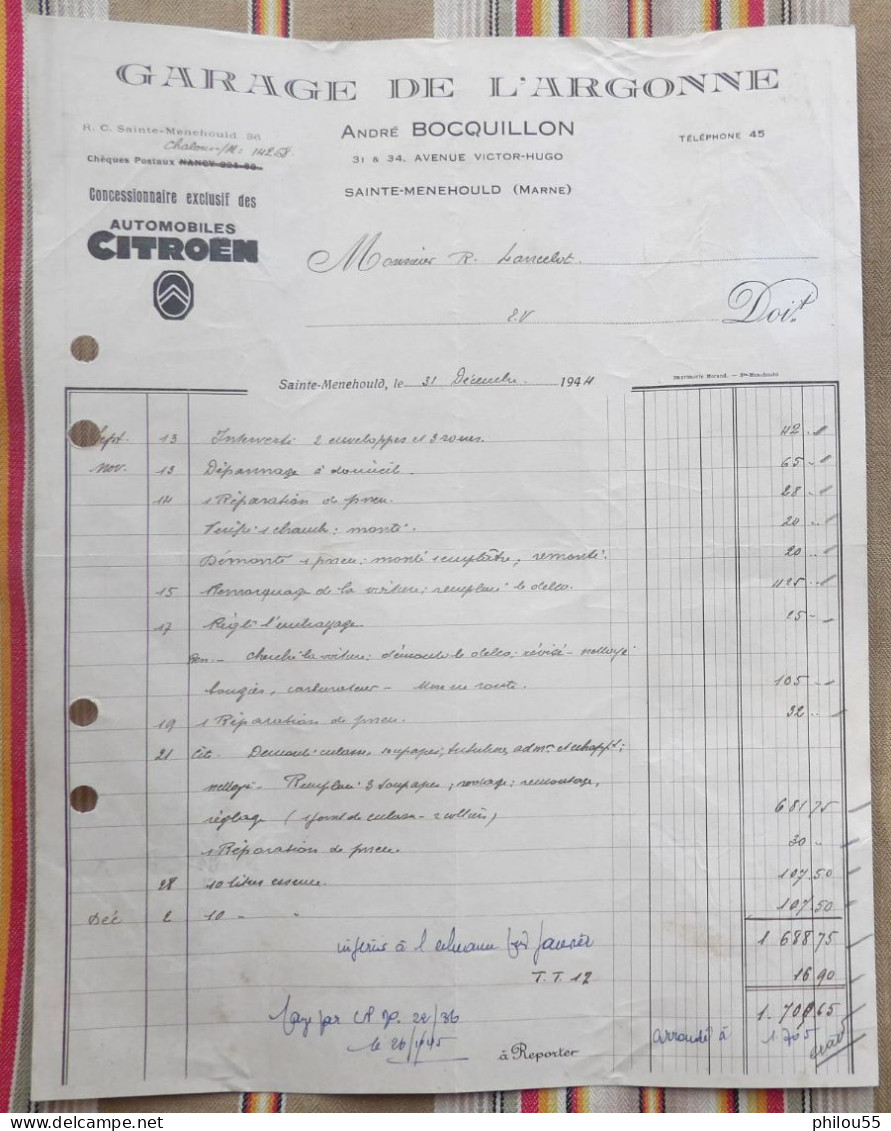 GARAGE DE L'ARGONNE
R. C. Sainte-Menehould 86
Chalons/M: 14268.
Chèques Postaux NANCY
ANDRÉ BOCQUILLON
TÉLÉPHONE 45
31 & 34, AVENUE VICTOR-HUGO
SAINTE-MENEHOULD (MARNE)
Concessionnaire exclusif des
AUTOMOBILES
CITROËN
Monsieur R. Lancelot.
E.V
Doit
Imprimerie Morand. — Ste-Menehould
Sainte-Menehould, le 31 Décembre 1944
Sept. 13 Interverti 2 enveloppes et 3 roues. 42 „
Nov. 13 Dépannage à domicil 65 „
14 1 Réparation de pneu. 28 „
Verifié 1 chambre: monté. 20 „
Démonté 1 pneu; monté 1 emplâtre, remonté. 20 „
15 Remorquage de la voiture; remplacé le delco. 425 „
17 Réglé l'embrayage 25 „
Ren- Cherché la voiture; démonté le delco; révisé - nettoyé
bougies, carburateur - Mise en route. 105 „
19 1 Réparation de pneu. 32 „
21 Cit. Demonté culasse, soupapes, tubulure, adm. et echappt;
nettoyé - Remplacé 3 soupapes, rodage; remontage,
réglage (1 joint de culasse - 2 colliers) 681 75
1 Réparation de pneu 30 „
28 10 litres essence. 107.50
Déc 2 10 - " 107.50
1 688 75
T.T. 12 16 90
1.705 65
Payé par CP N° 22/36
le 26/1/45
à Reporter
arrondi à 1705